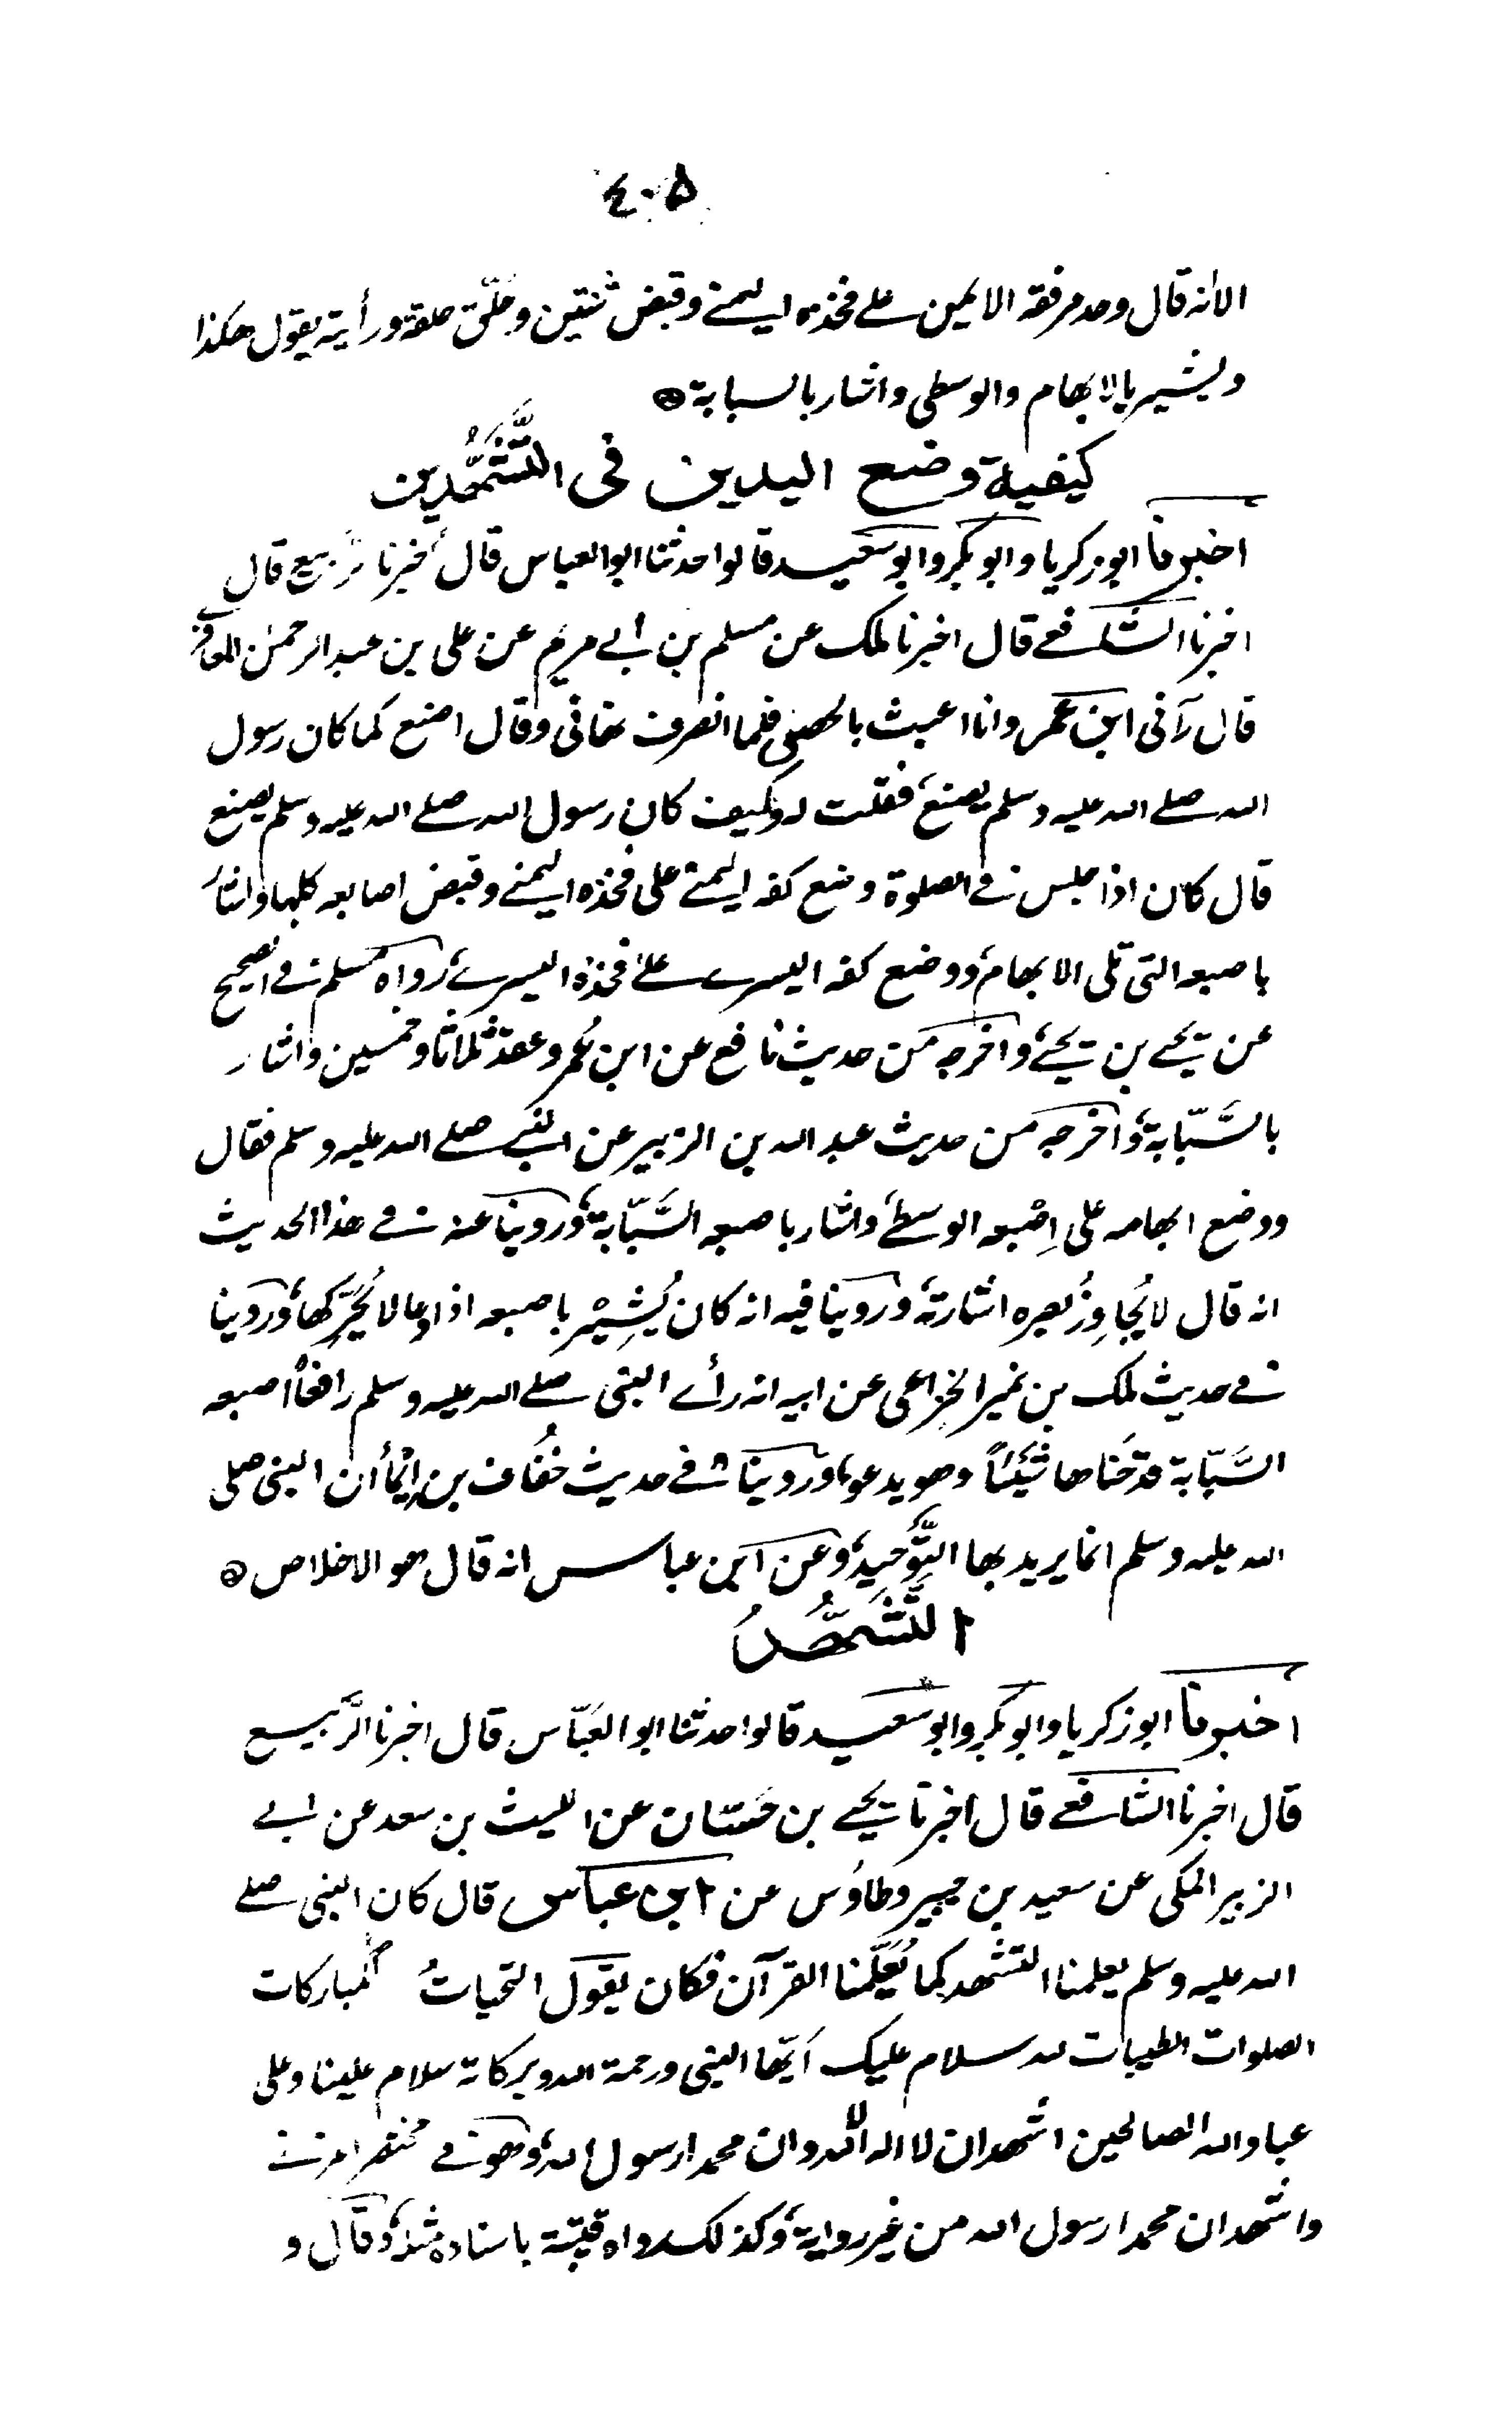 ٤٠۵
الا انه قال وحد مرفقه الايمن على فخذه اليمنى وقبض ثنتين وحلّق حلقة ورأيته يقول هكذا
ويشير بالابهام والوسطى واشار بالسبابة
كيفية وضع اليدين فى التَّشَهُّدين
اخبرنا ابوزكريا وابوبكر وابوسعيد قالوا حدثنا ابوالعباس قال اخبرنا ربيع قال
اخبرنا الشافعى قال اخبرنا ملك عن مسلم بن ابى مريم عن على بن عبدالرحمن المعافرى
قال رآنى ابن عمر وانا اعبث بالحصى فلما انصرف نهانى وقال اصنع كما كان رسول
الله صلى الله عليه وسلم يصنع، فقلت له وكيف كان رسول الله صلى الله عليه وسلم يصنع
قال كان اذا جلس فى الصلوة وضع كفه اليمنى على فخذه اليمنى وقبض اصابعه كلها واشار
باصبعه التى تلى الابهام، ووضع كفه اليسرى على فخذه اليسرى، رواه مسلم فى الصحيح
عن يحيى بن يحيى، واخرجه من حديث نافع عن ابن عُمر وعقد ثلاثا وخمسين واشار
بالسَّبّابة، واخرجه من حديث عبدالله بن الزبير عن النبى صلى الله عليه وسلم فقال
ووضع ابهامه على اِصْبعه الوسطى، واشار باصبعه السَّبّابة، وروينا عنه فى هذا الحديث
انه قال لا يُجاوِزُ بصره اشارته، وروينا فيه انه كان يُشِيْر باصبعه اذا دعا لا يُحَرِّكها، وروينا
فى حديث ملك بن نمير الخزاعى عن ابيه انه رأى النبى صلى الله عليه وسلم رافعاً اصبعه
السَّبّابة قد حَناها شَيْئاً وهو يدعو، وروينا فى حديث خُفاف بن اِيْماً ان النبى صلى
الله عليه وسلم انما يريد بها التَّوحِيد، وعن ابن عباس انه قال هو الاخلاص
التَّشَهُّدُ
اخبرنا ابوزكريا وابوبكر وابوسعيد قالوا حدثنا ابوالعَبّاس قال اخبرنا الرَّبيع
قال اخبرنا الشافعى قال اخبرنا يحيى بن حَسّان عن الليث بن سعد عن ابى
الزبير المكى عن سعيد بن جبير وطاؤس عن ابن عباس قال كان النبى صلى
الله عليه وسلم يعلمنا التشهد كما يُعَلّمنا القرآن فكان يقول التحياتُ المباركات
الصلوات الطيبات لله سلام عليك اَيّها النبى ورحمة الله وبركاته سلام علينا وعلى
عباد الله الصالحين اشهد ان لا اله الا الله وان محمدا رسول الله، وهو فى مختصر المزنى
واشهد ان محمدا رسول الله من غير رواية، وكذلك رواه قتيبة باسناده مثله، وقال و